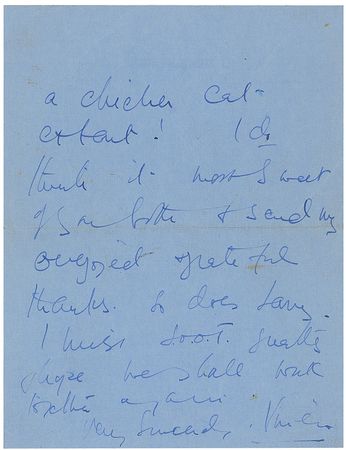 a chicher cat-
extant! I do
think it most sweet
of you both & send my
overjoyed grateful
thanks. So does Larry.
I miss S.O.O.T. greatly
& hope we shall work
together again
Very Sincerely, Vivien